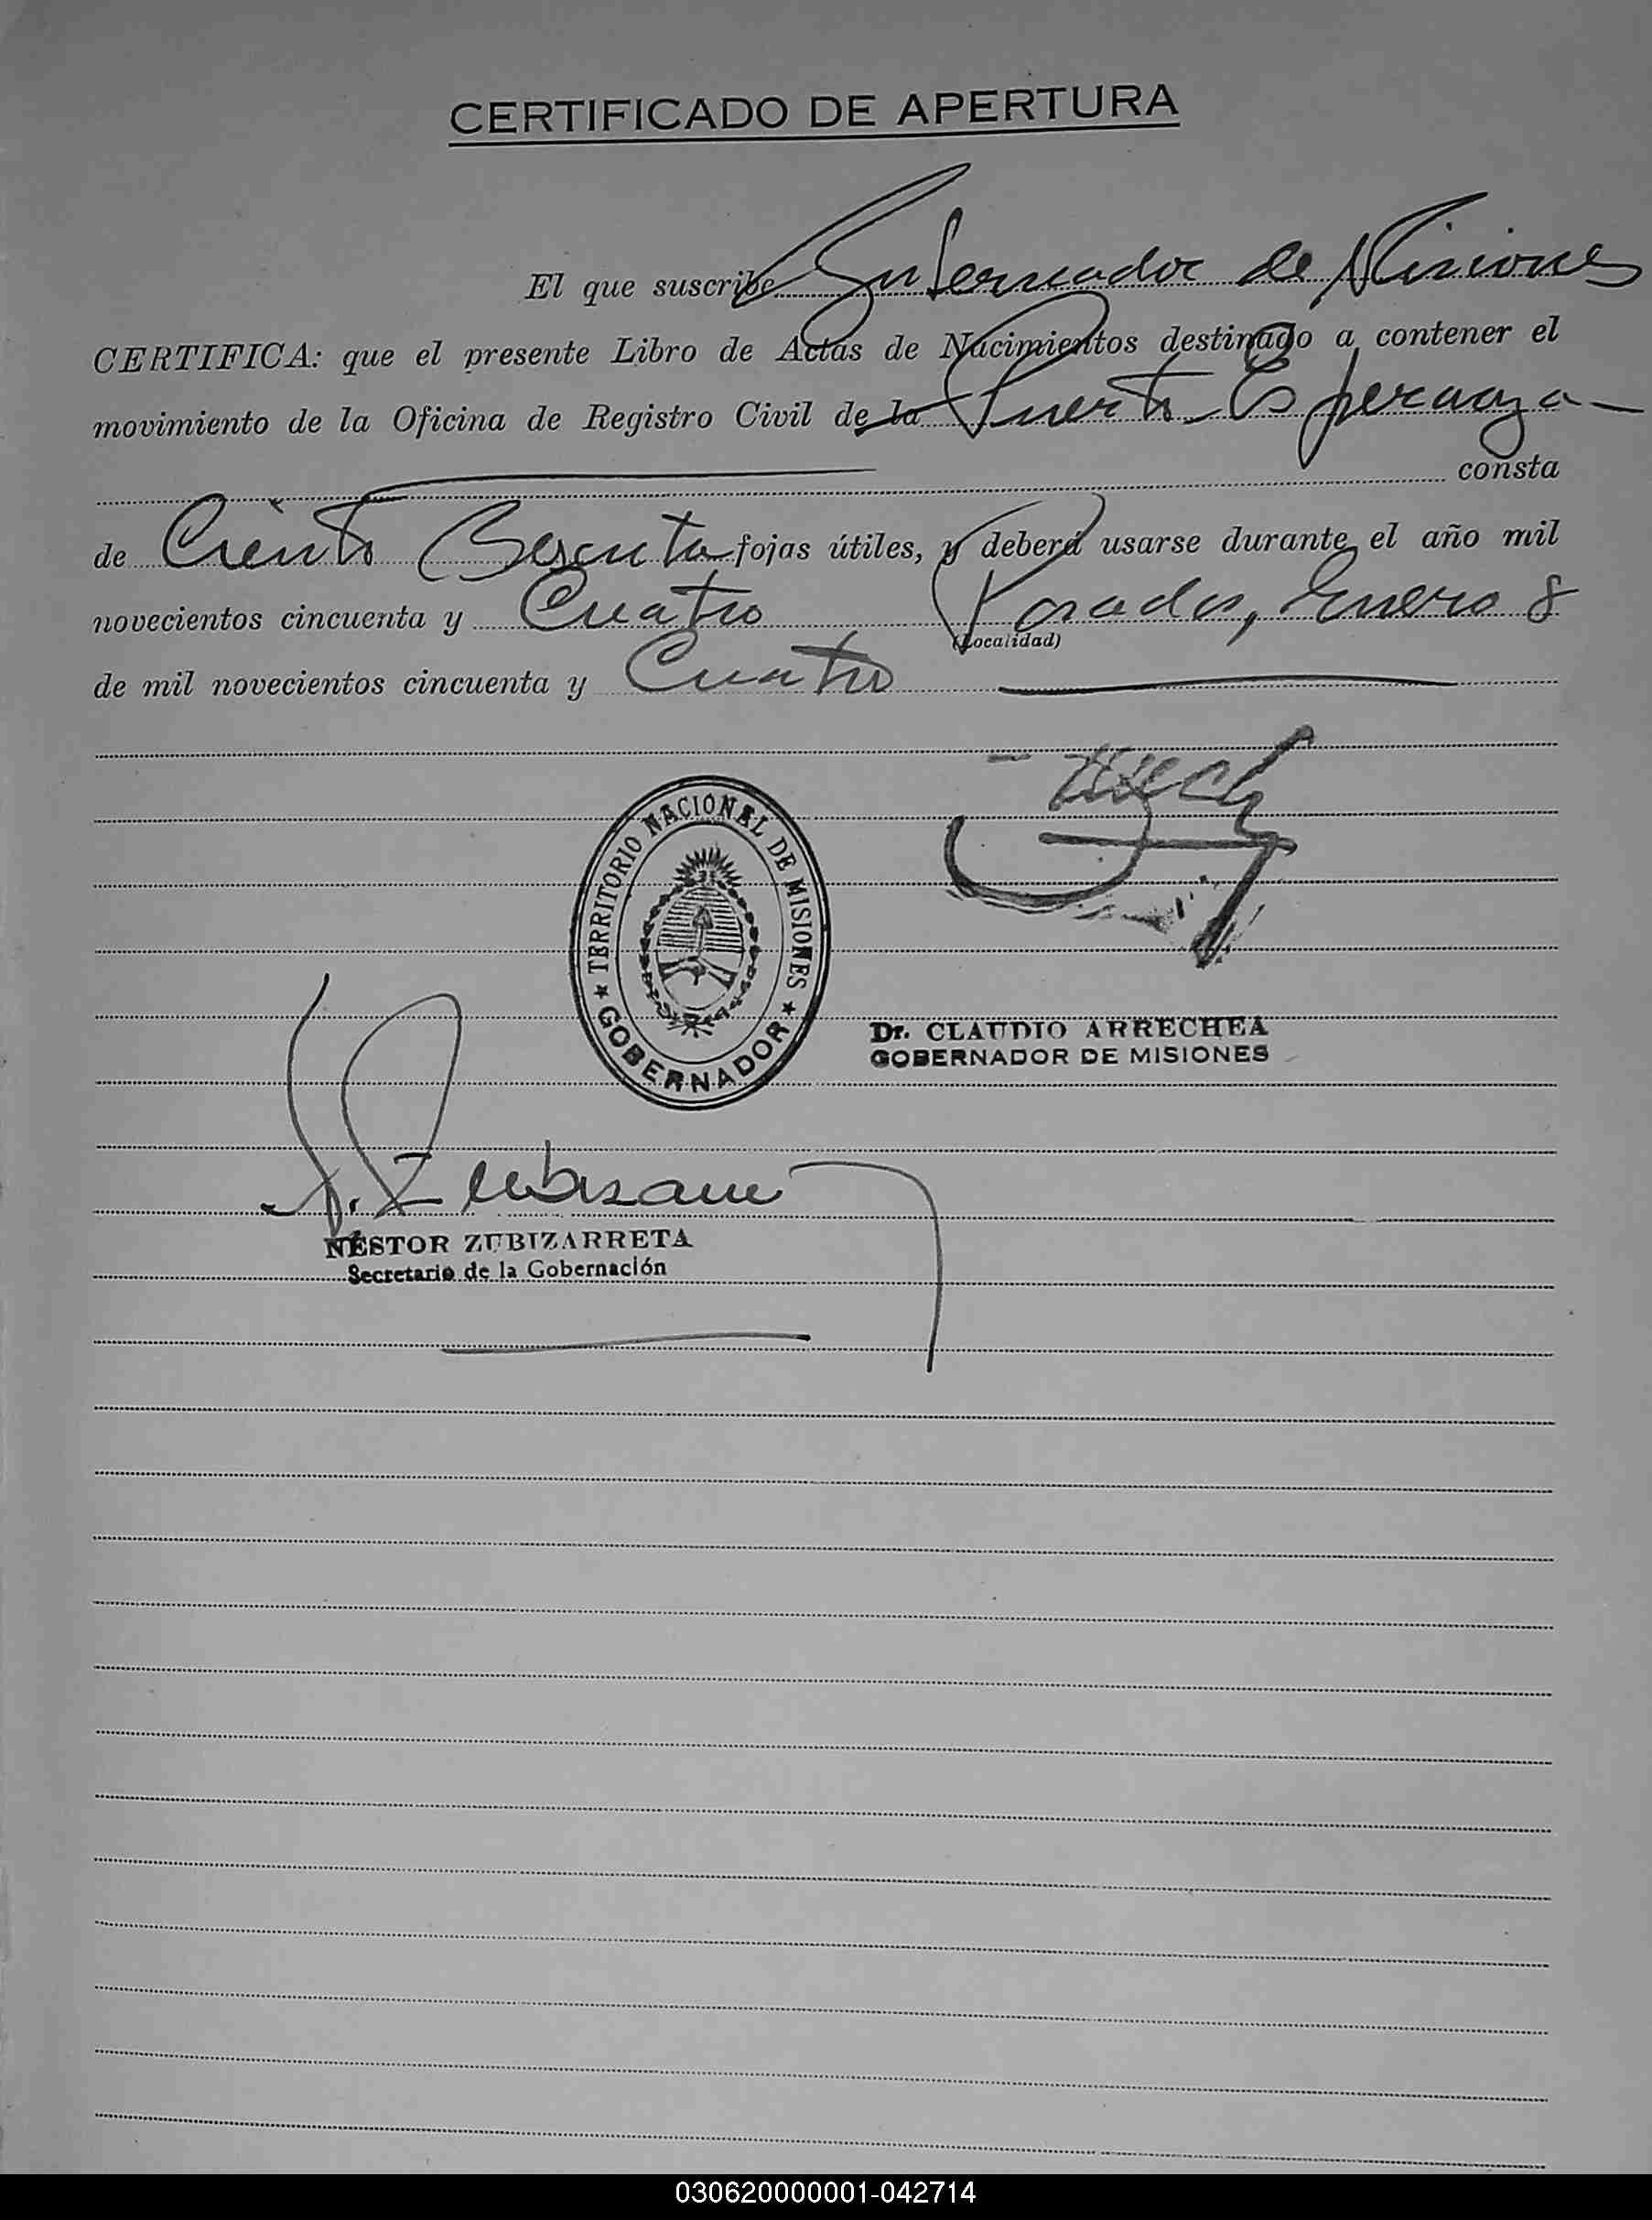 CERTIFICADO DE APERTURA
El que suscribe Gobernador de Misiones
CERTIFICA: que el presente Libro de Actas de Nacimientos destinado a contener el
movimiento de la Oficina de Registro Civil de la Puerto Esperanza
consta
de Ciento Sesenta fojas útiles, y deberá usarse durante el año mil
novecientos cincuenta y Cuatro Posadas, Enero 8
(Localidad)
de mil novecientos cincuenta y Cuatro
TERRITORIO NACIONAL DE MISIONES
GOBERNADOR
Dr. CLAUDIO ARRECHEA
GOBERNADOR DE MISIONES
NÉSTOR ZUBIZARRETA
Secretario de la Gobernación
030620000001-042714